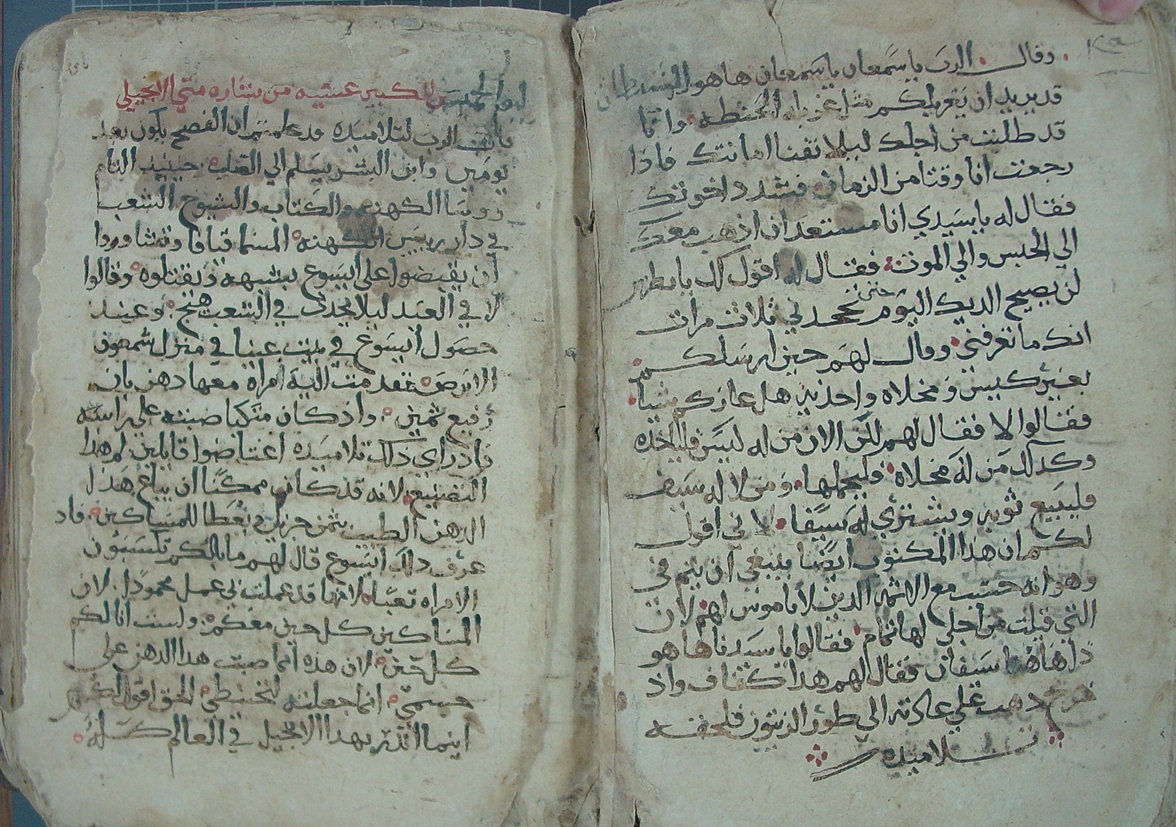 وقال الرب ياسمعان ياسمعان هاهو الشيطان
قد يريد ان يغربلكم مثل غربلة الحنطه وانا
قد طلبت من اجلك ليلا تفنا امانتك فاذا
رجعت انا وقتا من الزمان فشدد اخوتك
فقال له ياسيدي انا مستعد ان اذهب معك
الي الحبس والي الموت فقال له اقول لك يابطرس
لن يصيح الديك اليوم حتى تجحدني ثلاث مرات
انك ما تعرفني وقال لهم حين ارسلكم
بغير كيس ومخلاه واحذيه هل عازكم شيا
فقالوا لا فقال لهم لكن الان من له كيس فلياخده
وكدلك من له مخلاه فليحملها ومن لا له سيف
فليبيع ثوبه ويشتري له سيفا لاني اقول
لكم ان هدا المكتوب ايضا ينبغي ان يتم في
وهو انه حسب مع الاثمه الدين لا ناموس لهم لان
التي قيلت من اجلي لها تمام فقالوا ياسيدنا هاهو
ذا هاهنا سيفان فقال لهم هدا كفاف واذ
خرج دهب علي عادته الي طور الزيتون فلحقه
تلاميده
ليوم الخميس الكبير عشيه من بشاره متي الانجيلي
قال الرب لتلاميده قد علمتم ان الفصح يكون بعد
يومين وابن البشر يسلم الي الصلب حينيد التام
روسا الكهنه والكتاب والشيوخ الشعب
في دار رييس الكهنه المسما قيافا وتشاوروا
ان يقبضوا علي ايسوع بشبهه ويقتلوه وقالوا
لا في العيد ليلا يحدث في الشعب هيج وعند
حصول ايسوع في بيت عنيا في منزل شمعون
الابرص تقدمت اليه امراه معها دهن بان
رفيع ثمين واذ كان متكيا صبته علي راسه
فاذ راي ذلك تلاميده اعتاضوا قايلين لم هدا
التضييع لانه قد كان ممكنا ان يباع هدا
الدهن الطيب بثمن جزيل ويعطا للمساكين فاد
عرف دلك ايسوع قال لهم ما بالكم تكسبون
الامراه تعبا لانها قد عملت بي عمل محمودا لان
المساكين كل حين معكم ولست انا لكم
كل حين لان هده انما صبت هدا الدهن علي
جسمي انما جعلته لتحنيطي الحق اقول لكم
اينما اندر بهدا الانجيل في العالم كله